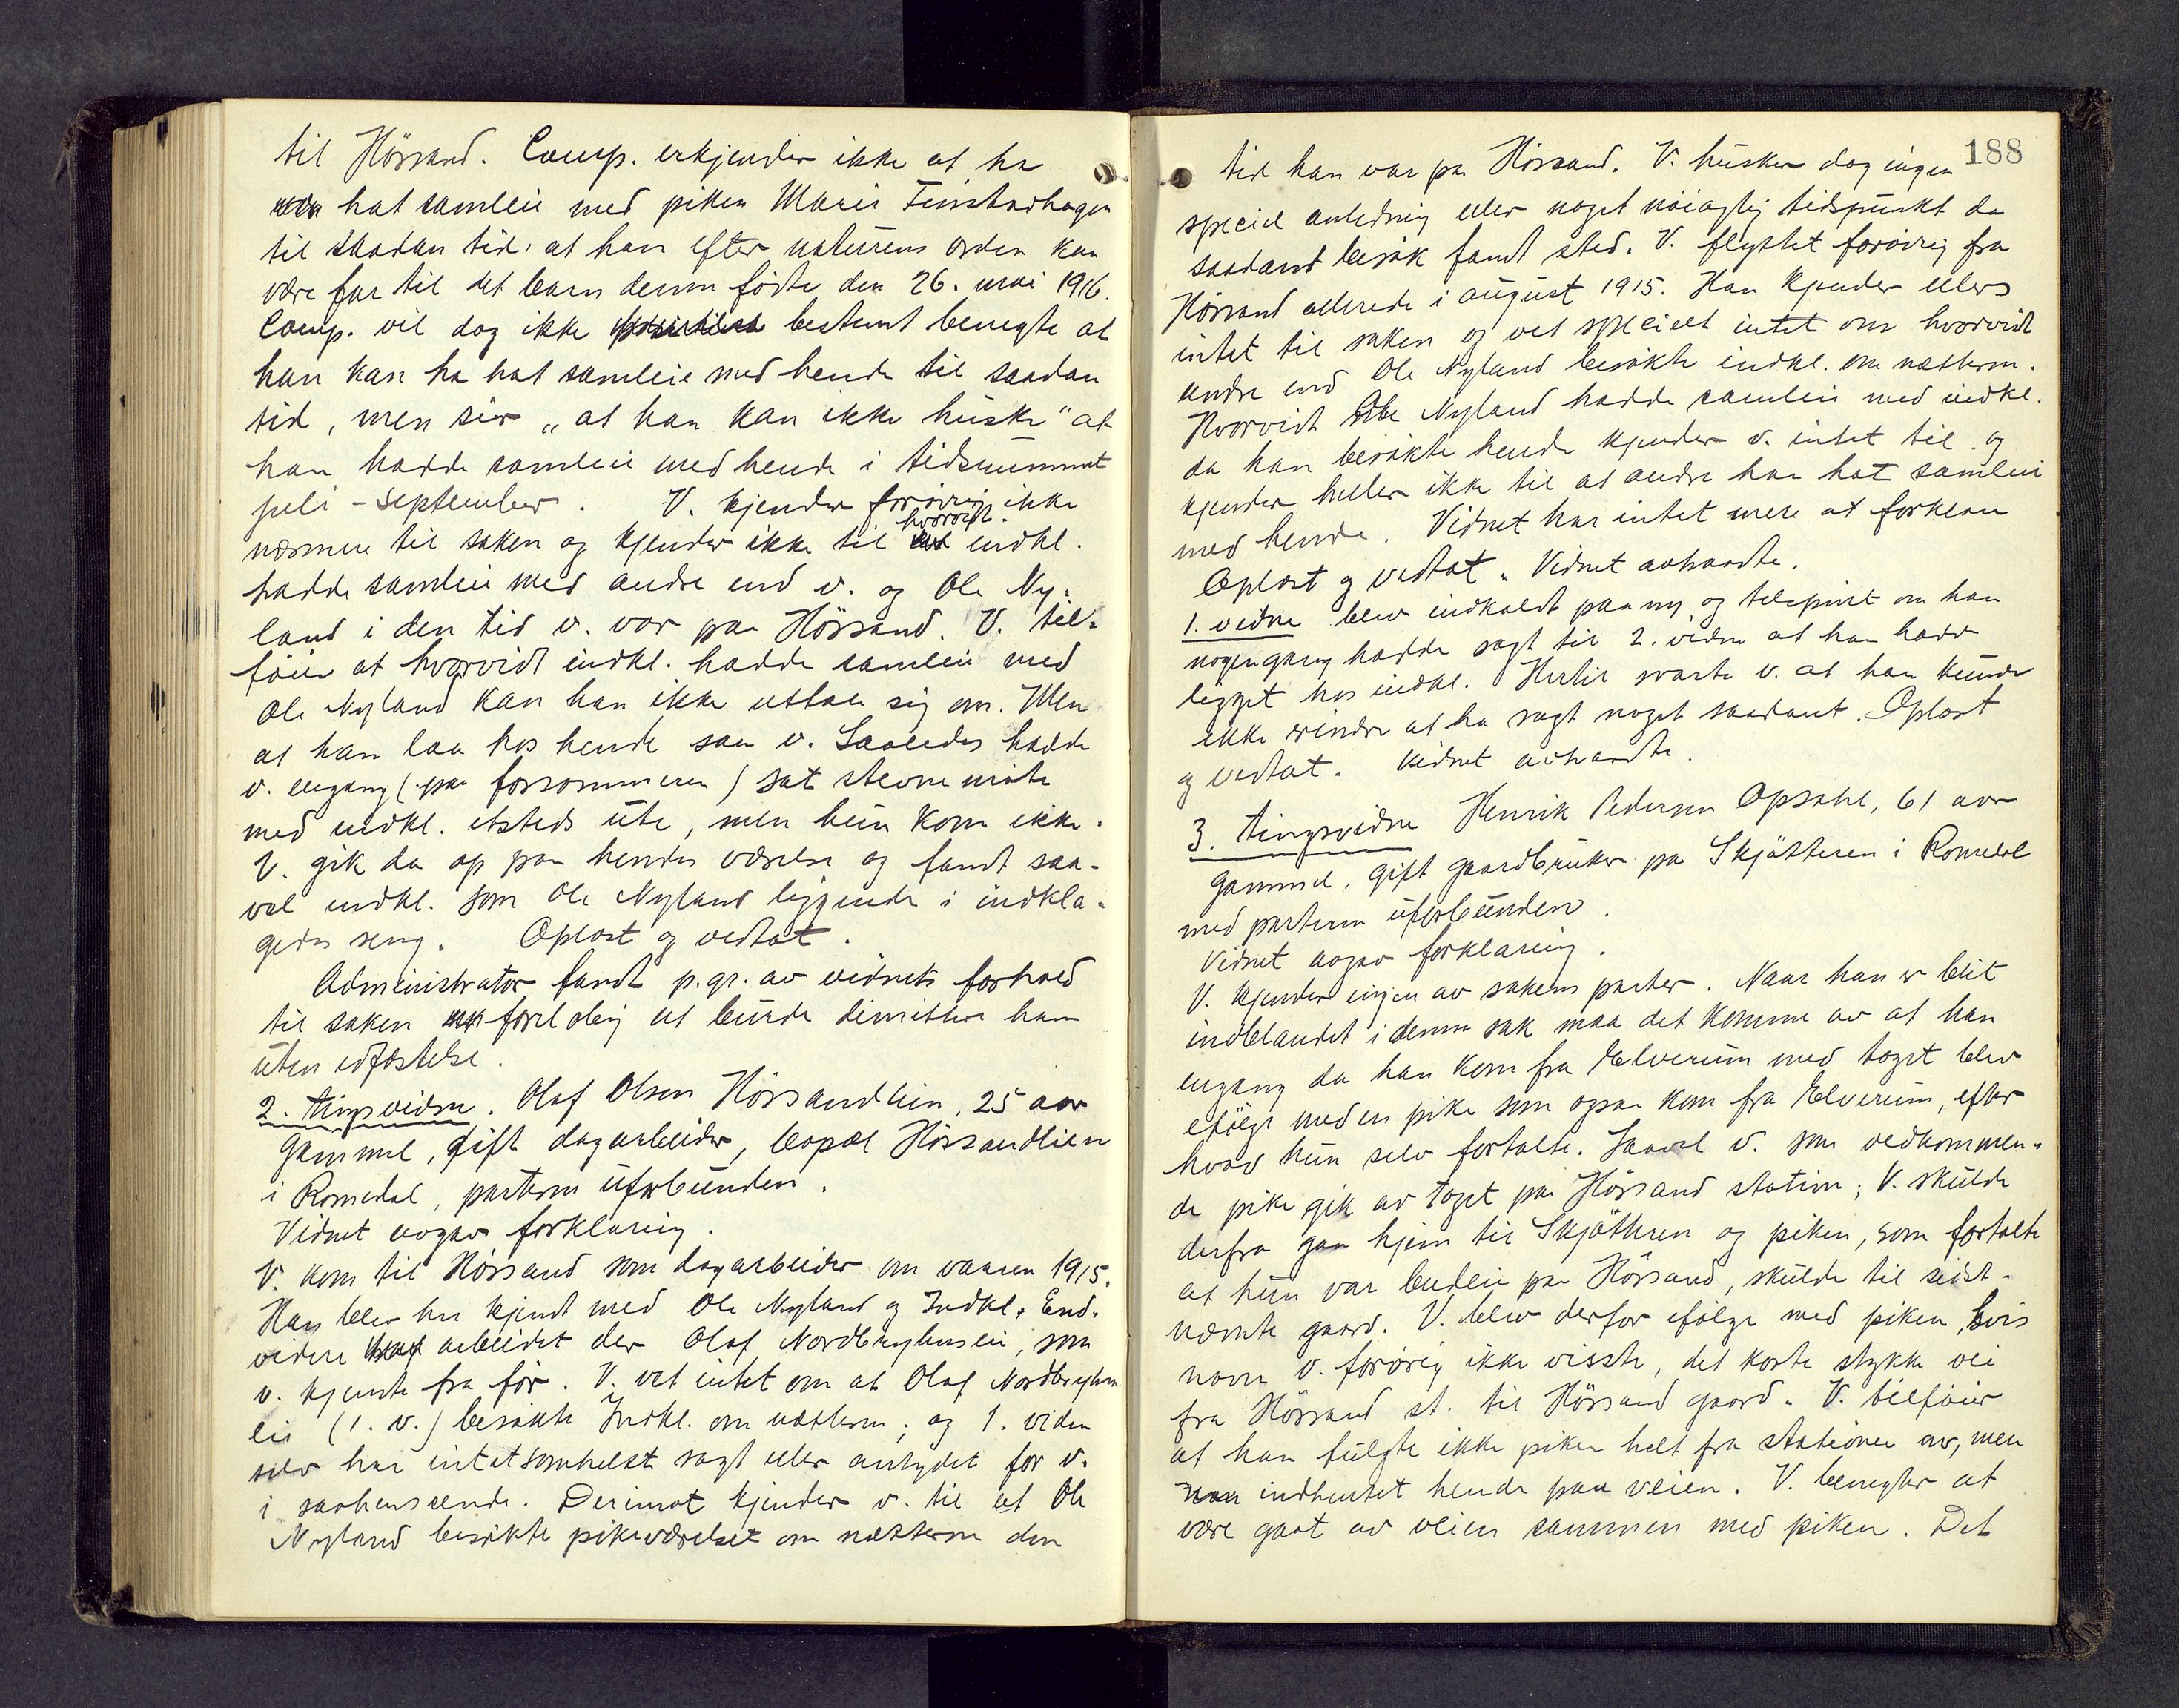 til Hörsand. Comp. erkjender ikke at ha
hat samleie med piken Marie Finstadhagen
til saadan tid, at han efter naturens orden kan
være far til det barn denne födte den 26. mai 1916.
Comp. vil dog ikke bestemt benegte at
han kan ha hat samleie med hende til saadan
tid, men sier „at han kan ikke huske" at
han hadde samleie med hende i tidsrummet
juli - september. V. kjender forövrig ikke
nærmere til saken og kjender ikke til hvorvidt indkl.
hadde samleie med andre end v. og Ole Ny-
land i den tid v. var paa Hörsand. V. til-
föier at hvorvidt indkl. hadde samleie med
Ole Nyland kan han ikke uttale sig om. Men
at han laa hos hende saa v. Saaledes hadde
v. engang (paa forsommeren) sat stevnemöte
med indkl. etsteds ute, men hun kom ikke.
V. gik da op paa hendes værelse og fandt saa-
vel indkl. som Ole Nyland liggende i indkla-
gedes seng. Oplæst og vedtat.
Administrator fandt p. gr. av vidnets forhold
til saken forelöbig at burde dimittere ham
uten edfæstelse.
2. tingsvidne. Olaf Olsen Hörsandlien, 25 aar
gammel, gift dagarbeider, bopæl Hörsandlien
i Romedal, parterne uforbunden.
Vidnet avgav forklaring.
V. kom til Hörsand som dagarbeider om vaaren 1915.
Han blev her kjendt med Ole Nyland og Indkl. End-
videre arbeidet der Olaf Nordbryhnslie, som
v. kjendte fra för. V. vet intet om at Olaf Nordbryhns-
lie (1. v.) besökte Indkl. om nætterne; og 1. vidne
selv har intetsomhelst sagt eller antydet for v.
i saahenseende. Derimot kjender v. til at Ole
Nyland besökte pikeværelset om nætterne den
188
tid han var paa Hörsand. V. husker dog ingen
speciel anledning eller noget nöiagtig tidspunkt da
saadant besök fandt sted. V. flyttet forövrig fra
Hörsand allerede i august 1915. Han kjender ellers
intet til saken og vet specielt intet om hvorvidt
andre end Ole Nyland besökte indkl. om nætterne.
Hvorvidt Ole Nyland hadde samleie med indkl.
da han besökte hende kjender v. intet til og
kjender heller ikke til at andre har hat samleie
med hende. Vidnet har intet mere at forklare
Oplæst og vedtat. Vidnet avtraadte.
1. vidne blev indkaldt paany og tilspurt om han
nogengang hadde sagt til 2. vidne at han hadde
ligget hos indkl. Hertil svarte v. at han kunde
ikke erindre at ha sagt noget saadant. Oplæst
og vedtat. Vidnet avtraadte.
3. tingsvidne Henrik Pedersen Opsahl, 61 aar
gammel, gift gaardbruker paa Skjötteren i Romedal
med parterne uforbunden.
Vidnet avgav forklaring.
V. kjender ingen av sakens parter. Naar han er blit
indblandet i denne sak maa det komme av at han
engang da han kom fra Elverum med toget blev
ifölge med en pike som ogsaa kom fra Elverum, efter
hvad hun selv fortalte. Saavel v. som vedkommen-
de pike gik av toget paa Hörsand station; V. skulde
derfra gaa hjem til Skjötteren og piken, som fortalte
at hun var budeie paa Hörsand, skulde til sidst-
nævnte gaard. V. blev derfor ifölge med piken, hvis
navn v. forövrig ikke visste, det korte stykke vei
fra Hörsand st. til Hörsand gaard. V. tilföier
at han fulgte ikke piken helt fra stationen av, men
indhentet hende paa veien. V. benegter at
være gaat av veien sammen med piken. Det